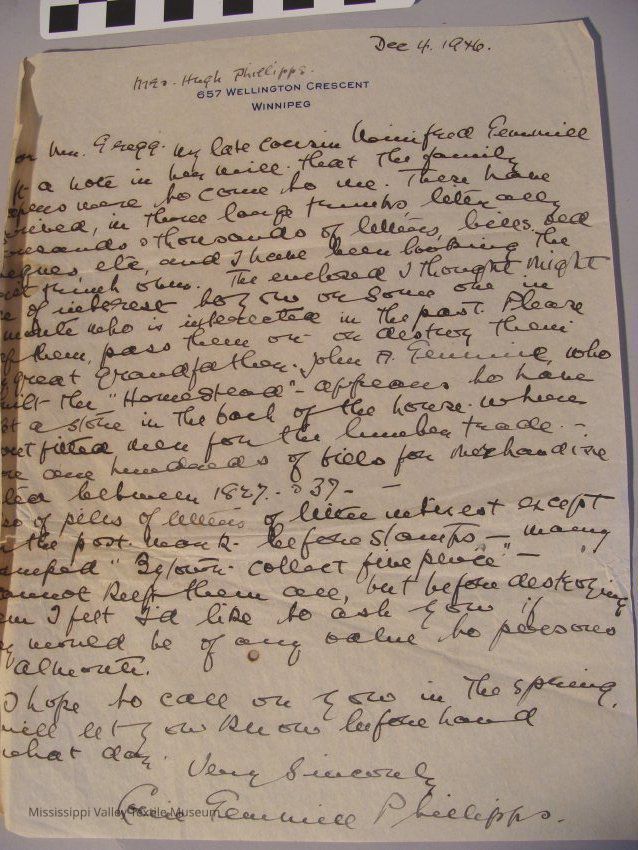 Dec 4. 1946.
Mrs. Hugh Phillipps.
657 WELLINGTON CRESCENT
WINNIPEG
Mr. Gregg. My late cousin Winifred Gemmill
a note in her will. that the family
were to come to me. There have
in three large trunks literally
thousands of letters, bills, and
etc, and I have been looking the
own. The enclosed I thought might
of interest to you or some one in
who is interested in the past. Please
them, pass them on or destroy them
great grandfather. John A. Gemmill, who
the "Homestead" - appears to have
a store in the back of the house. where
men for the lumber trade. -
are hundreds of bills for merchandise
between 1827. - 37 -
of piles of letters of little interest except
the post mark - before stamps - many
" collect five pence" -
cannot keep them all, but before destroying
I felt I'd like to ask you if
would be of any value to persons
almonte.
I hope to call on you in the spring.
will let you know before hand
what day.
Very Sincerely
Gemmill Phillipps.
Mississippi Valley Textile Museum